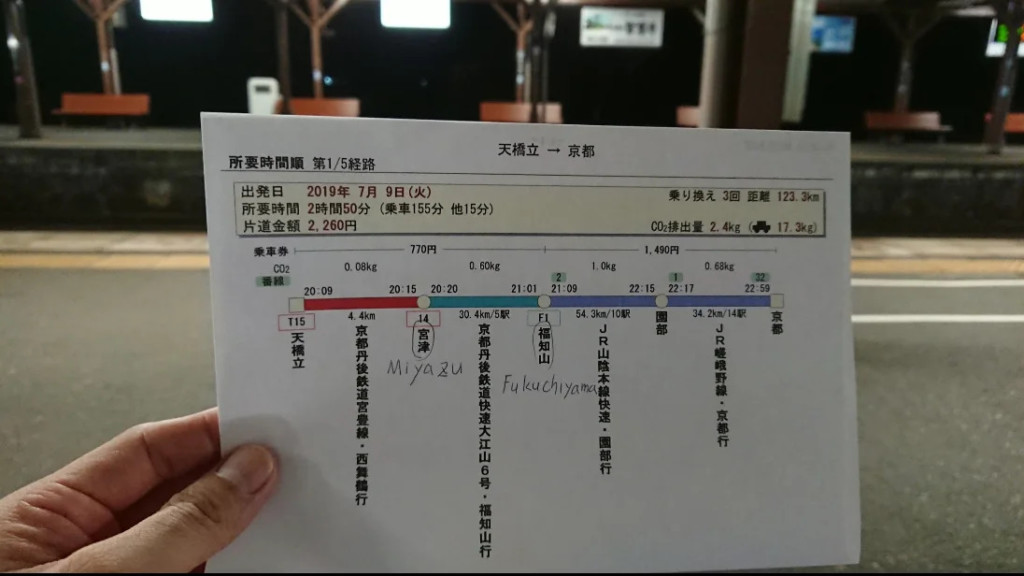 天橋立 → 京都
所要時間順 第1/5経路
出発日 2019年 7月 9日(火)
乗り換え 3回 距離 123.3km
所要時間 2時間50分 (乗車155分 他15分)
片道金額 2,260円
CO2排出量 2.4kg ( 17.3kg)
乗車券 770円 1,490円
CO2 0.08kg 0.60kg 1.0kg 0.68kg
番線 2 1 32
20:09 20:15 20:20 21:01 21:09 22:15 22:17 22:59
4.4km 30.4km/5駅 54.3km/10駅 34.2km/14駅
T15 14 F1
天橋立
京都丹後鉄道宮豊線・西舞鶴行
宮津
Miyazu
京都丹後鉄道快速大江山6号・福知山行
福知山
Fukuchiyama
JR山陰本線快速・園部行
園部
JR嵯峨野線・京都行
京都